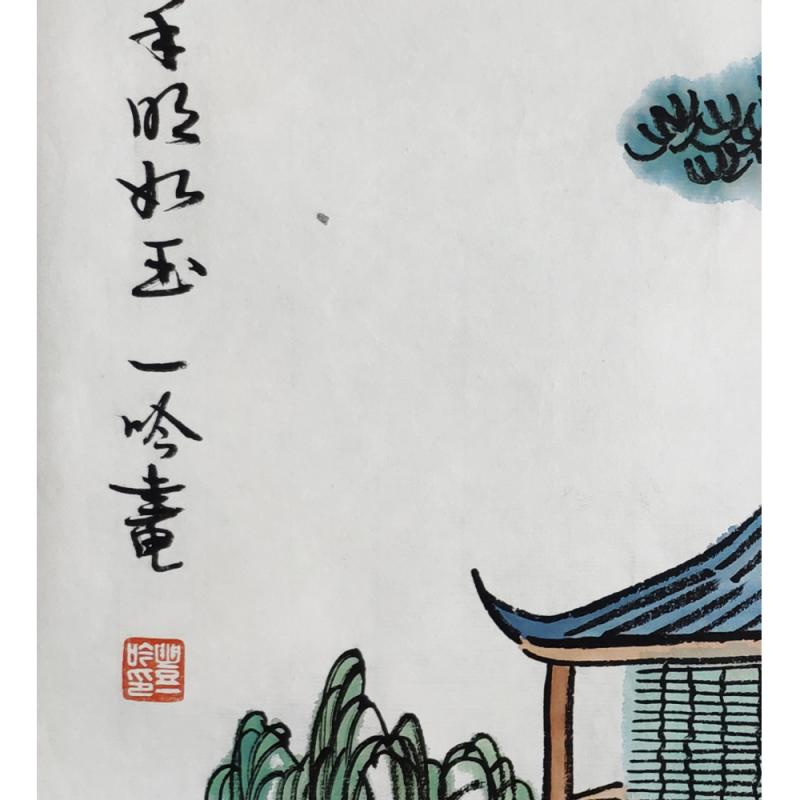 手明如玉 一吟畫
豐一吟印